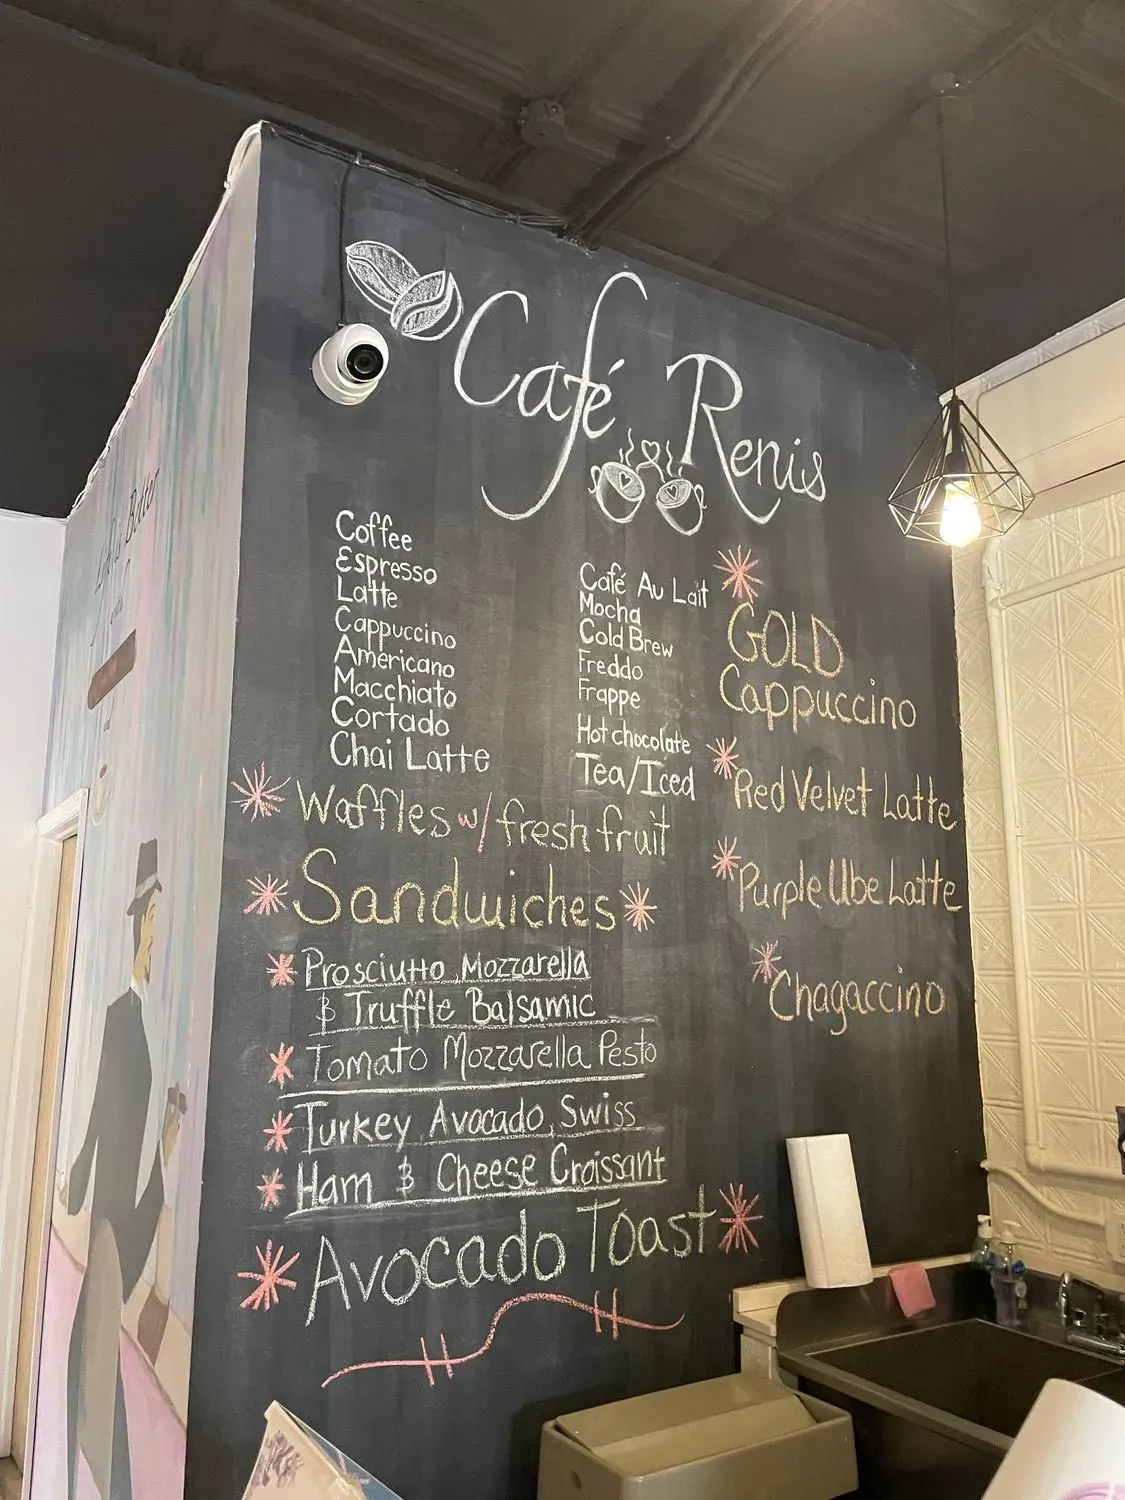 Café Renis
Coffee
Espresso
Latte
Cappuccino
Americano
Macchiato
Cortado
Chai Latte
Café Au Lait
Mocha
Cold Brew
Freddo
Frappe
Hot chocolate
Tea/Iced
GOLD
Cappuccino
Red Velvet Latte
Purple Ube Latte
Chagaccino
Waffles w/ fresh fruit
Sandwiches
Prosciutto, Mozzarella
& Truffle Balsamic
Tomato Mozzarella Pesto
Turkey Avocado, Swiss
Ham & Cheese Croissant
Avocado Toast